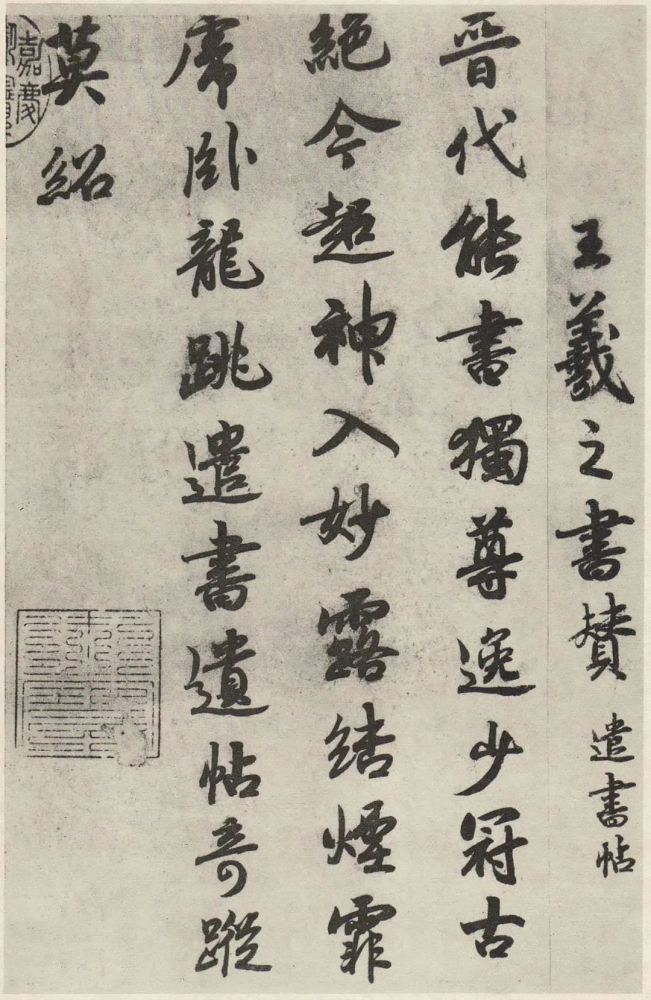 王羲之書賛 遣書帖
晉代能書獨尊逸少冠古
絕今超神入妙露結煙霏
虎卧龍跳遣書遺帖奇蹤
莫紹
嘉慶